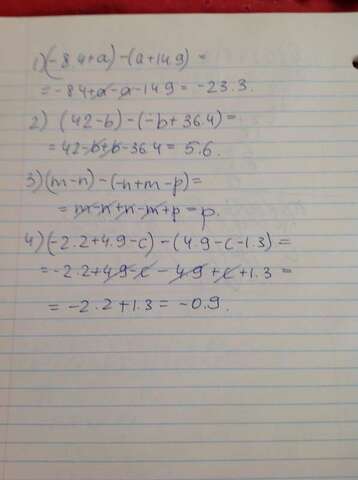 1) (-8.4+a) -(a+14.9) =
= -8.4+a-a-14.9 = -23.3.
2) (42-b)-(-b+36.4)=
= 42-b+b-36.4= 5.6.
3) (m-n)-(-n+m-p)=
= m-n+n-m+p=p.
4) (-2.2+4.9-c)-(4.9-c-1.3) =
= -2.2+4.9-c-4.9+c+1.3 =
= -2.2+1.3= -0.9.